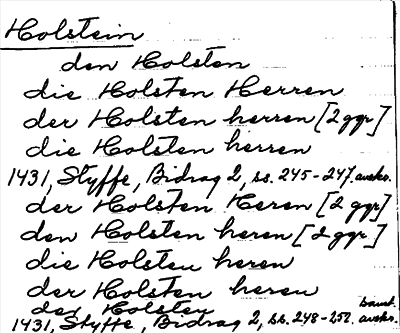 Holstein
den Holsten
die Holsten Herren
der Holsten herren [2 ggr]
die Holsten herren
1431, Styffe, Bidrag 2, ss. 245-247. avskr.
der Holsten Heren [2 ggr]
den Holsten heren [2 ggr]
die Holsten heren
der Holsten heren
der Holster
1431, Styffe, Bidrag 2, ss. 248-252. avskr.